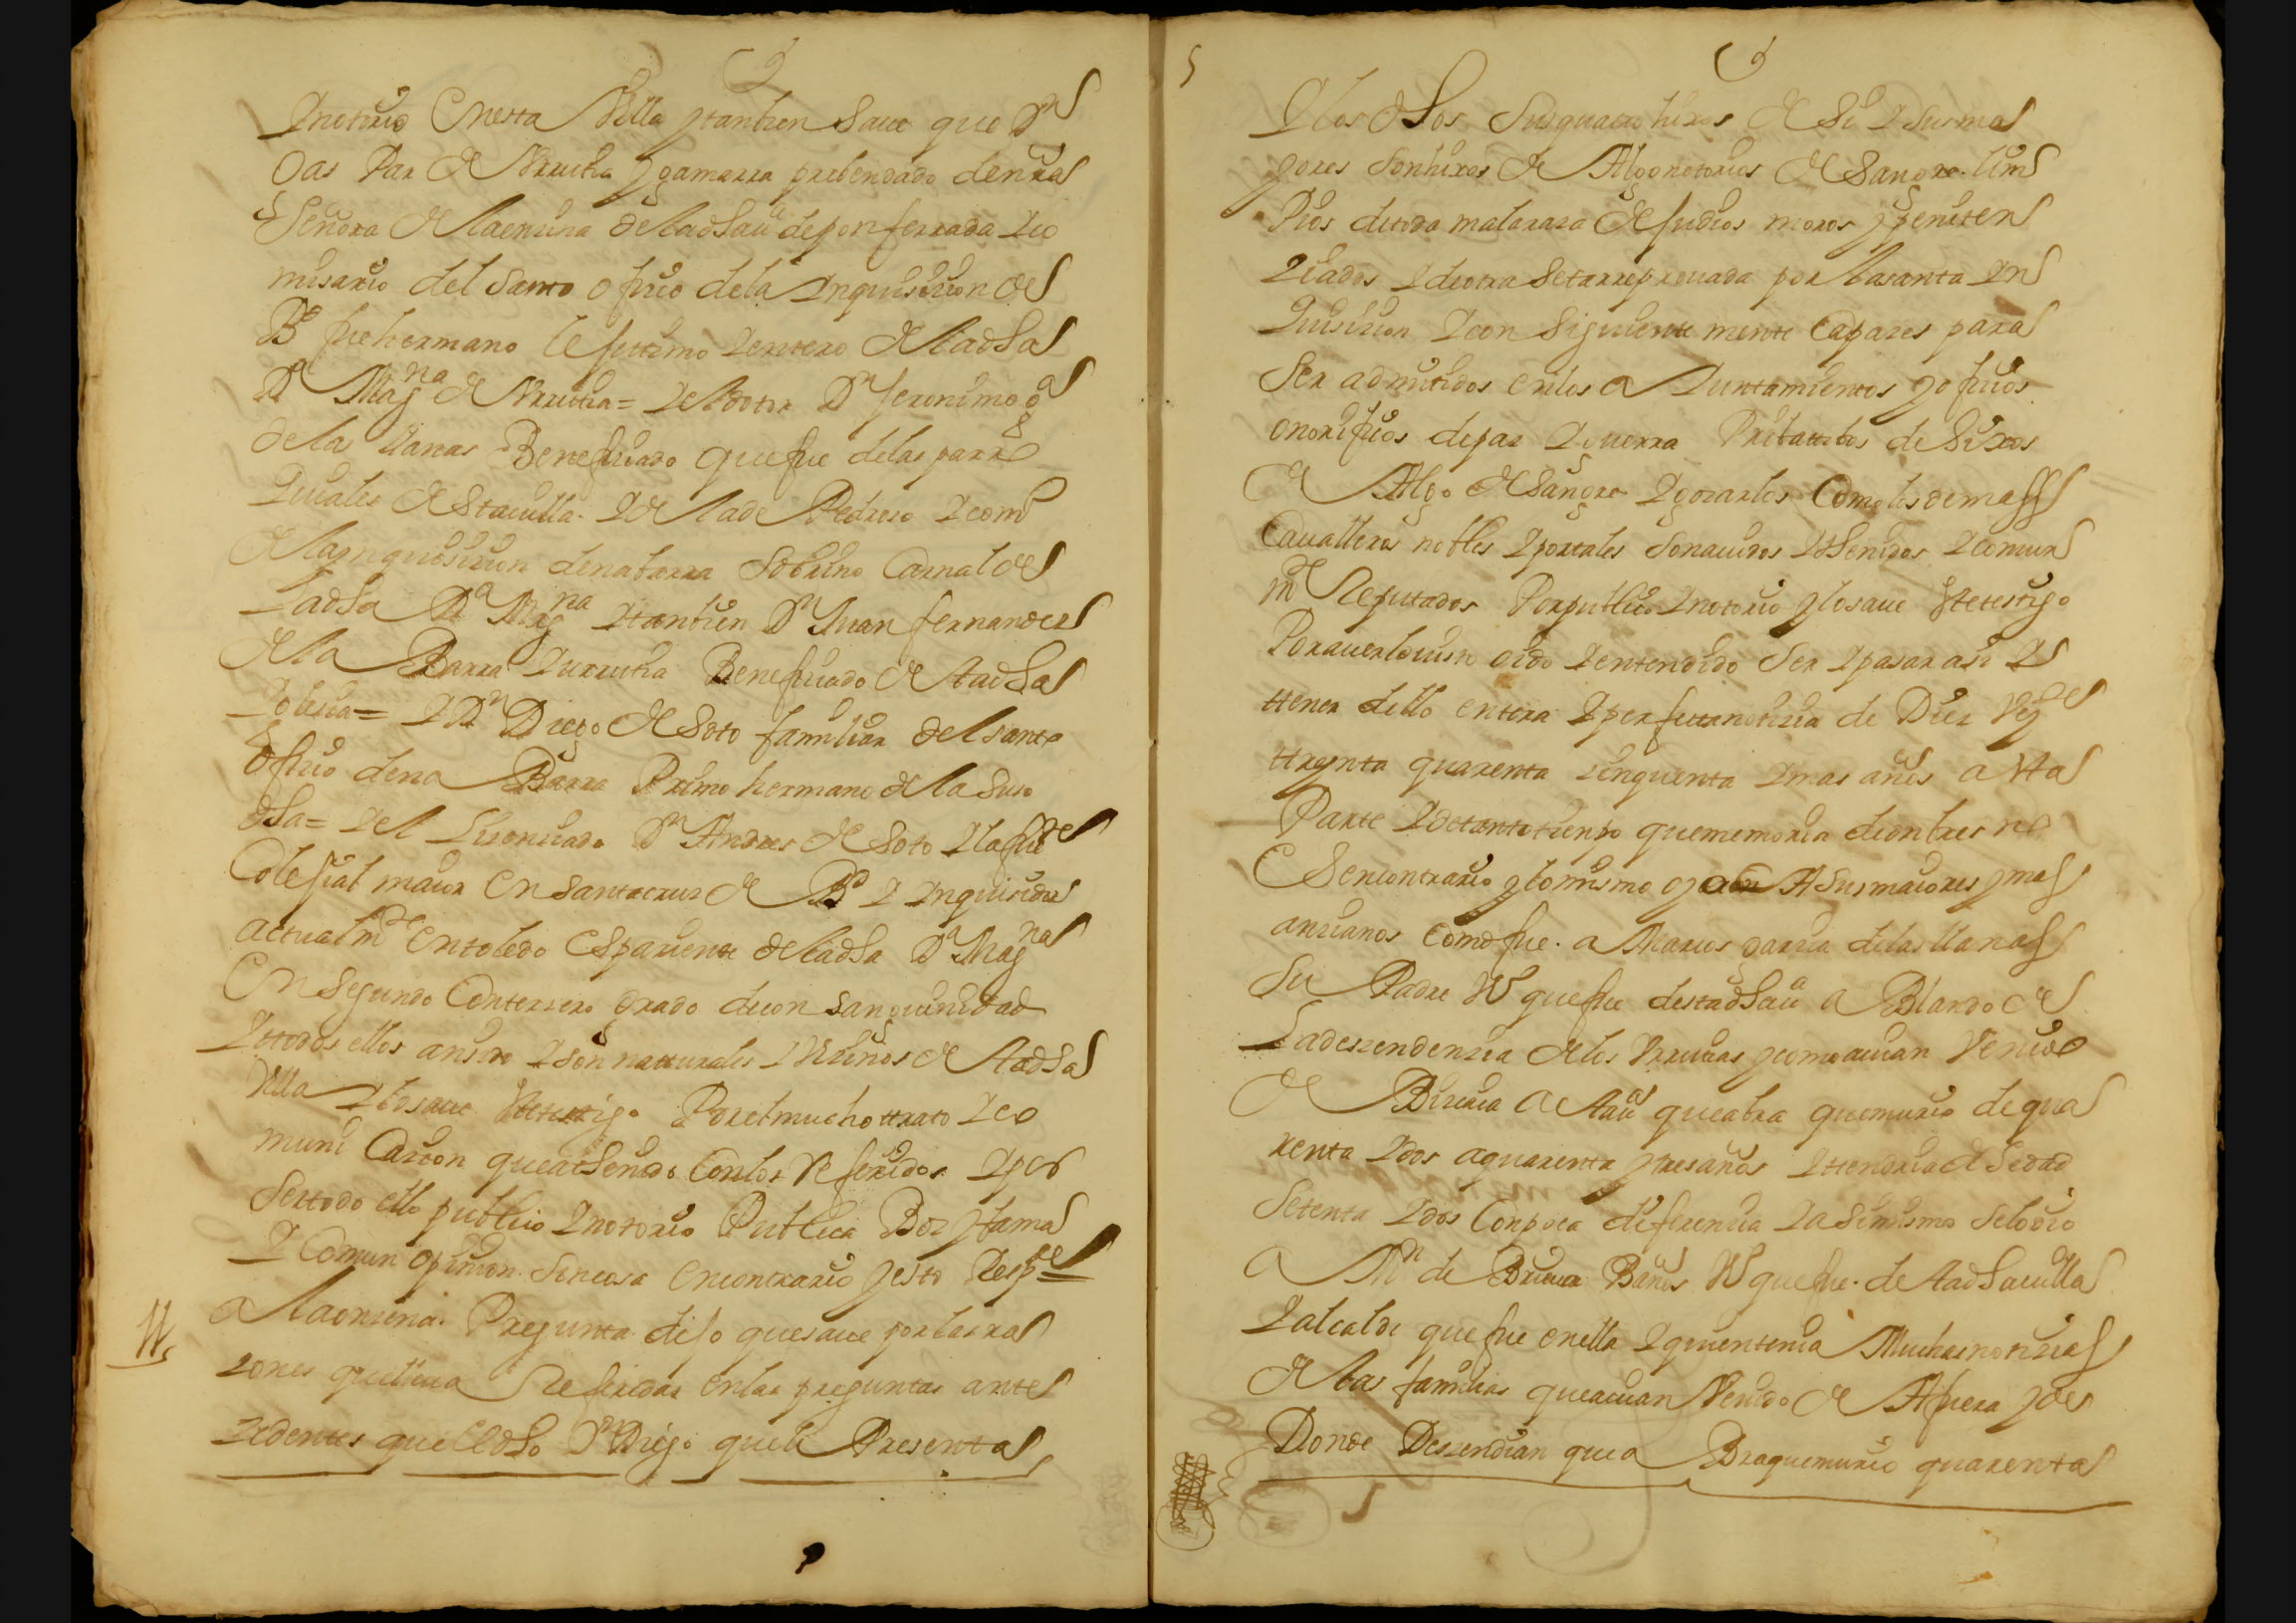 Ynotorio Enesta Villa ytanbien Saue que Dn
Oas Paz de Vrrutia ygamarra prebendado denra
Señora de Laencina de Ladha uª deponferrada Yco
misario del Santo oficio dela Ynquisicion de
Bd fue hermano lexittimo Yentero de Ladha
Dª Magna de Vrrutia = Yeldotor Dn Jeronimo gª
dela llanas Beneficiado que fue delas parro
quiales de Stacuilla Yde Lade Pedroso Ycom
de Laynquisicion denabarra Sobrino Carnal de
Ladha Dª Magna Ytanbien Dn Juan fernandez
de la Barra Yurrutia Beneficiado de Ladha
Yglesia = Y Dn Diego de Soto familiar del santo
oficio dena Barra Primo hermano de la Suso
dha = Yel Licenciado Dn Andres de Soto Ylafude
Colejial maior En Santacruz de Bd Y Ynquisidor
actualmte En toledo Espariente de Ladha Dª Magna
En Segundo Contersero grado decon sanguinidad
Ytodos ellos ansido Yson natturales Y Vecinos de Ladha
Villa Ylosaue Stetestigo Porelmucho ttrato Yco
muni Cacion queathenido Conlos Referidos Ypor
Sertodo ello publico Ynotorio Publica Boz yfama
Y Comun opinion Sincosa Encontrario yesto Respde
11 A Laoncena Pregunta dijo quesaue porlasra
zones quelleua Referidas Enlas preguntas ante
zedentes que Eldho Dn Diego quele Presenta
5
Ylos dhos Susquatro hixos de Si Ysusma
yores Sonhixos de Algonotorios de Sangre lim
Pios detoda malaraza de Judios moros ypeniten
ziados Ydeotra Setarreprouada por lasanta Yn
quisicion Ycon Siguiente mente Capazes para
Ser admitidos Enlos A Yuntamientos yoficios
onorificos depaz Yguerra Pribatibos de hixos
de Algo de Sangre Ygozarlos Comolosdemas
Caualleros nobles Yportales Sonauidos Ythenidos Ycomun
mte Reputados Porpublico Ynotorio ylosaue Stetestigo
Porauerlouisto oido Yentendido Ser Ypasar asi Y
ttener dello entera Yperfettanoticia de Diez Veyte
ttreynta quarenta zinquenta Ymas años a Sta
Parte Ydetantotienpo quememoria deonbres no
Es encontrario ylomismo oyo A Susmaiores ymas
anzianos Como fue a Marcos garcia delas llanas
Su Padre Vº quefue destadhauª a Blando de
Ladeszendenzia de los Vrrutias ycomoauian Venido
de Bizcaia A Stauª queabra quemurio de qua
renta Ydos aquarenta ytresaños Yttendria de hedad
Setenta Ydos Conpoca diferencia Yasimismo Selooio
a Mn de Bricua Baños Vº quefue de Ladhauilla
Yalcalde que fue enella Yquientenia Muchasnoticias
de las familias queauian Venido de Afuera yde
Donde Deszendian quea Braquemurio quarenta